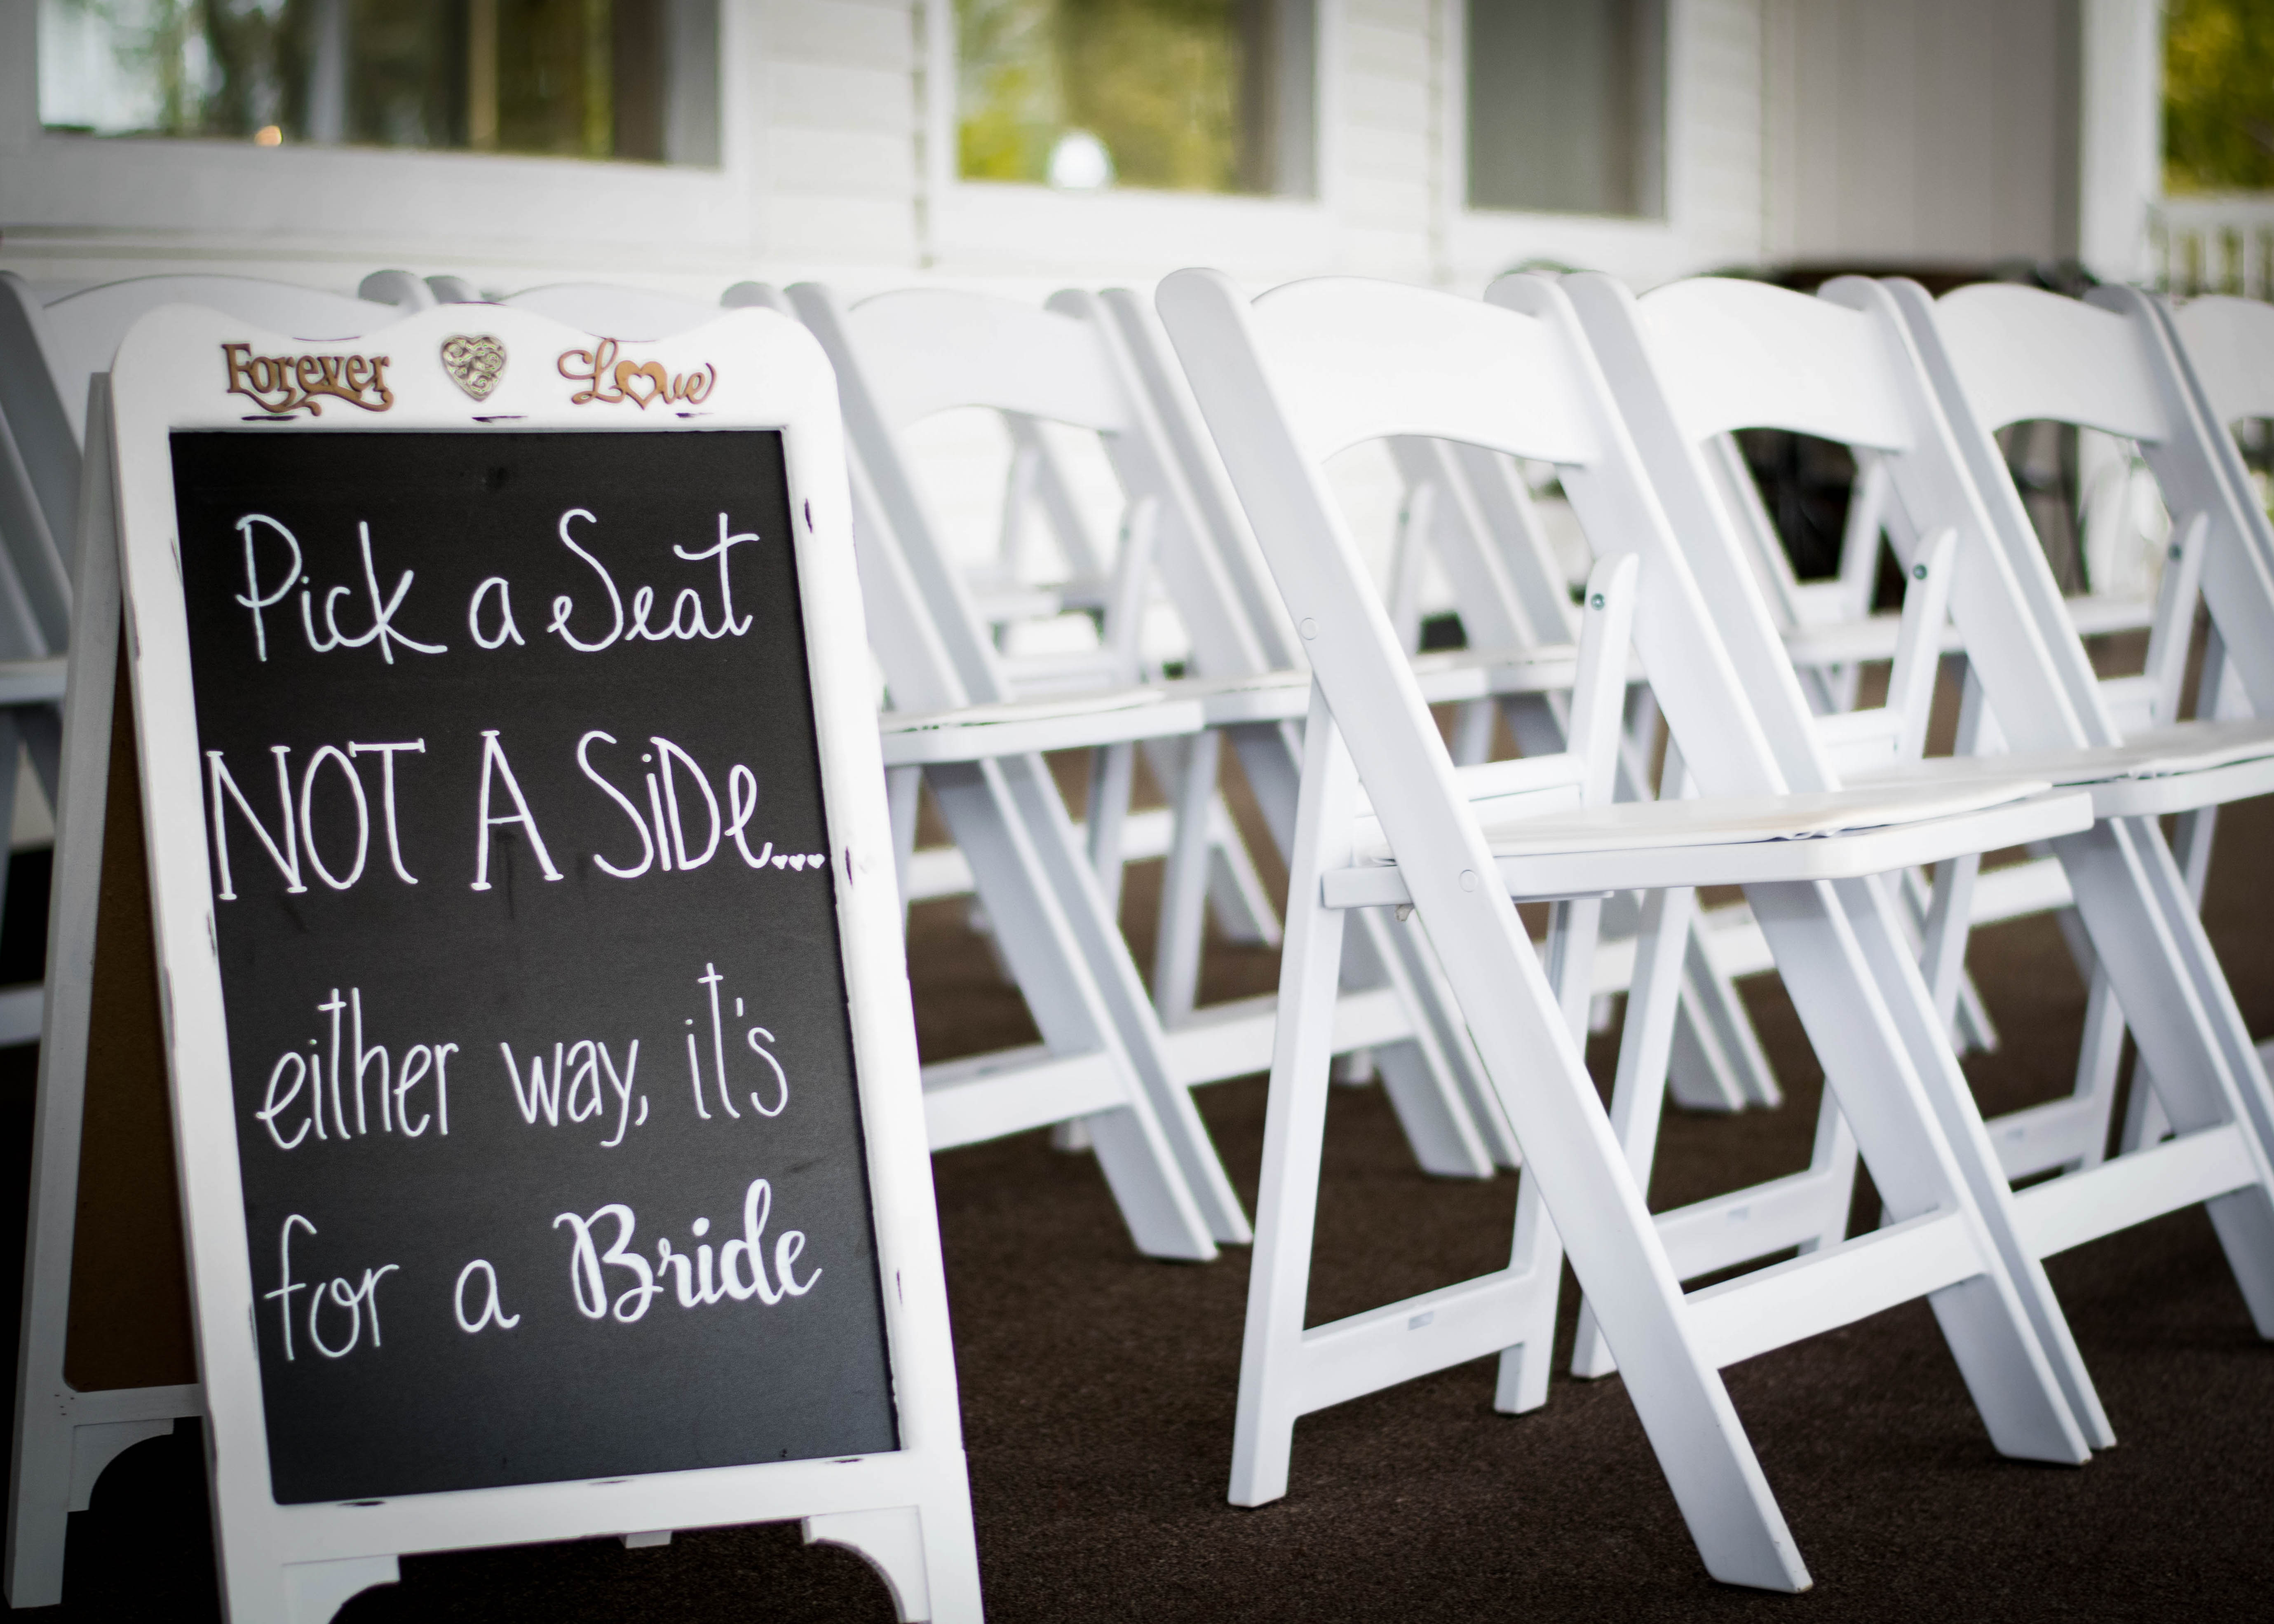 Forever Love
Pick a Seat
NOT A SiDe...
either way, it's
for a Bride